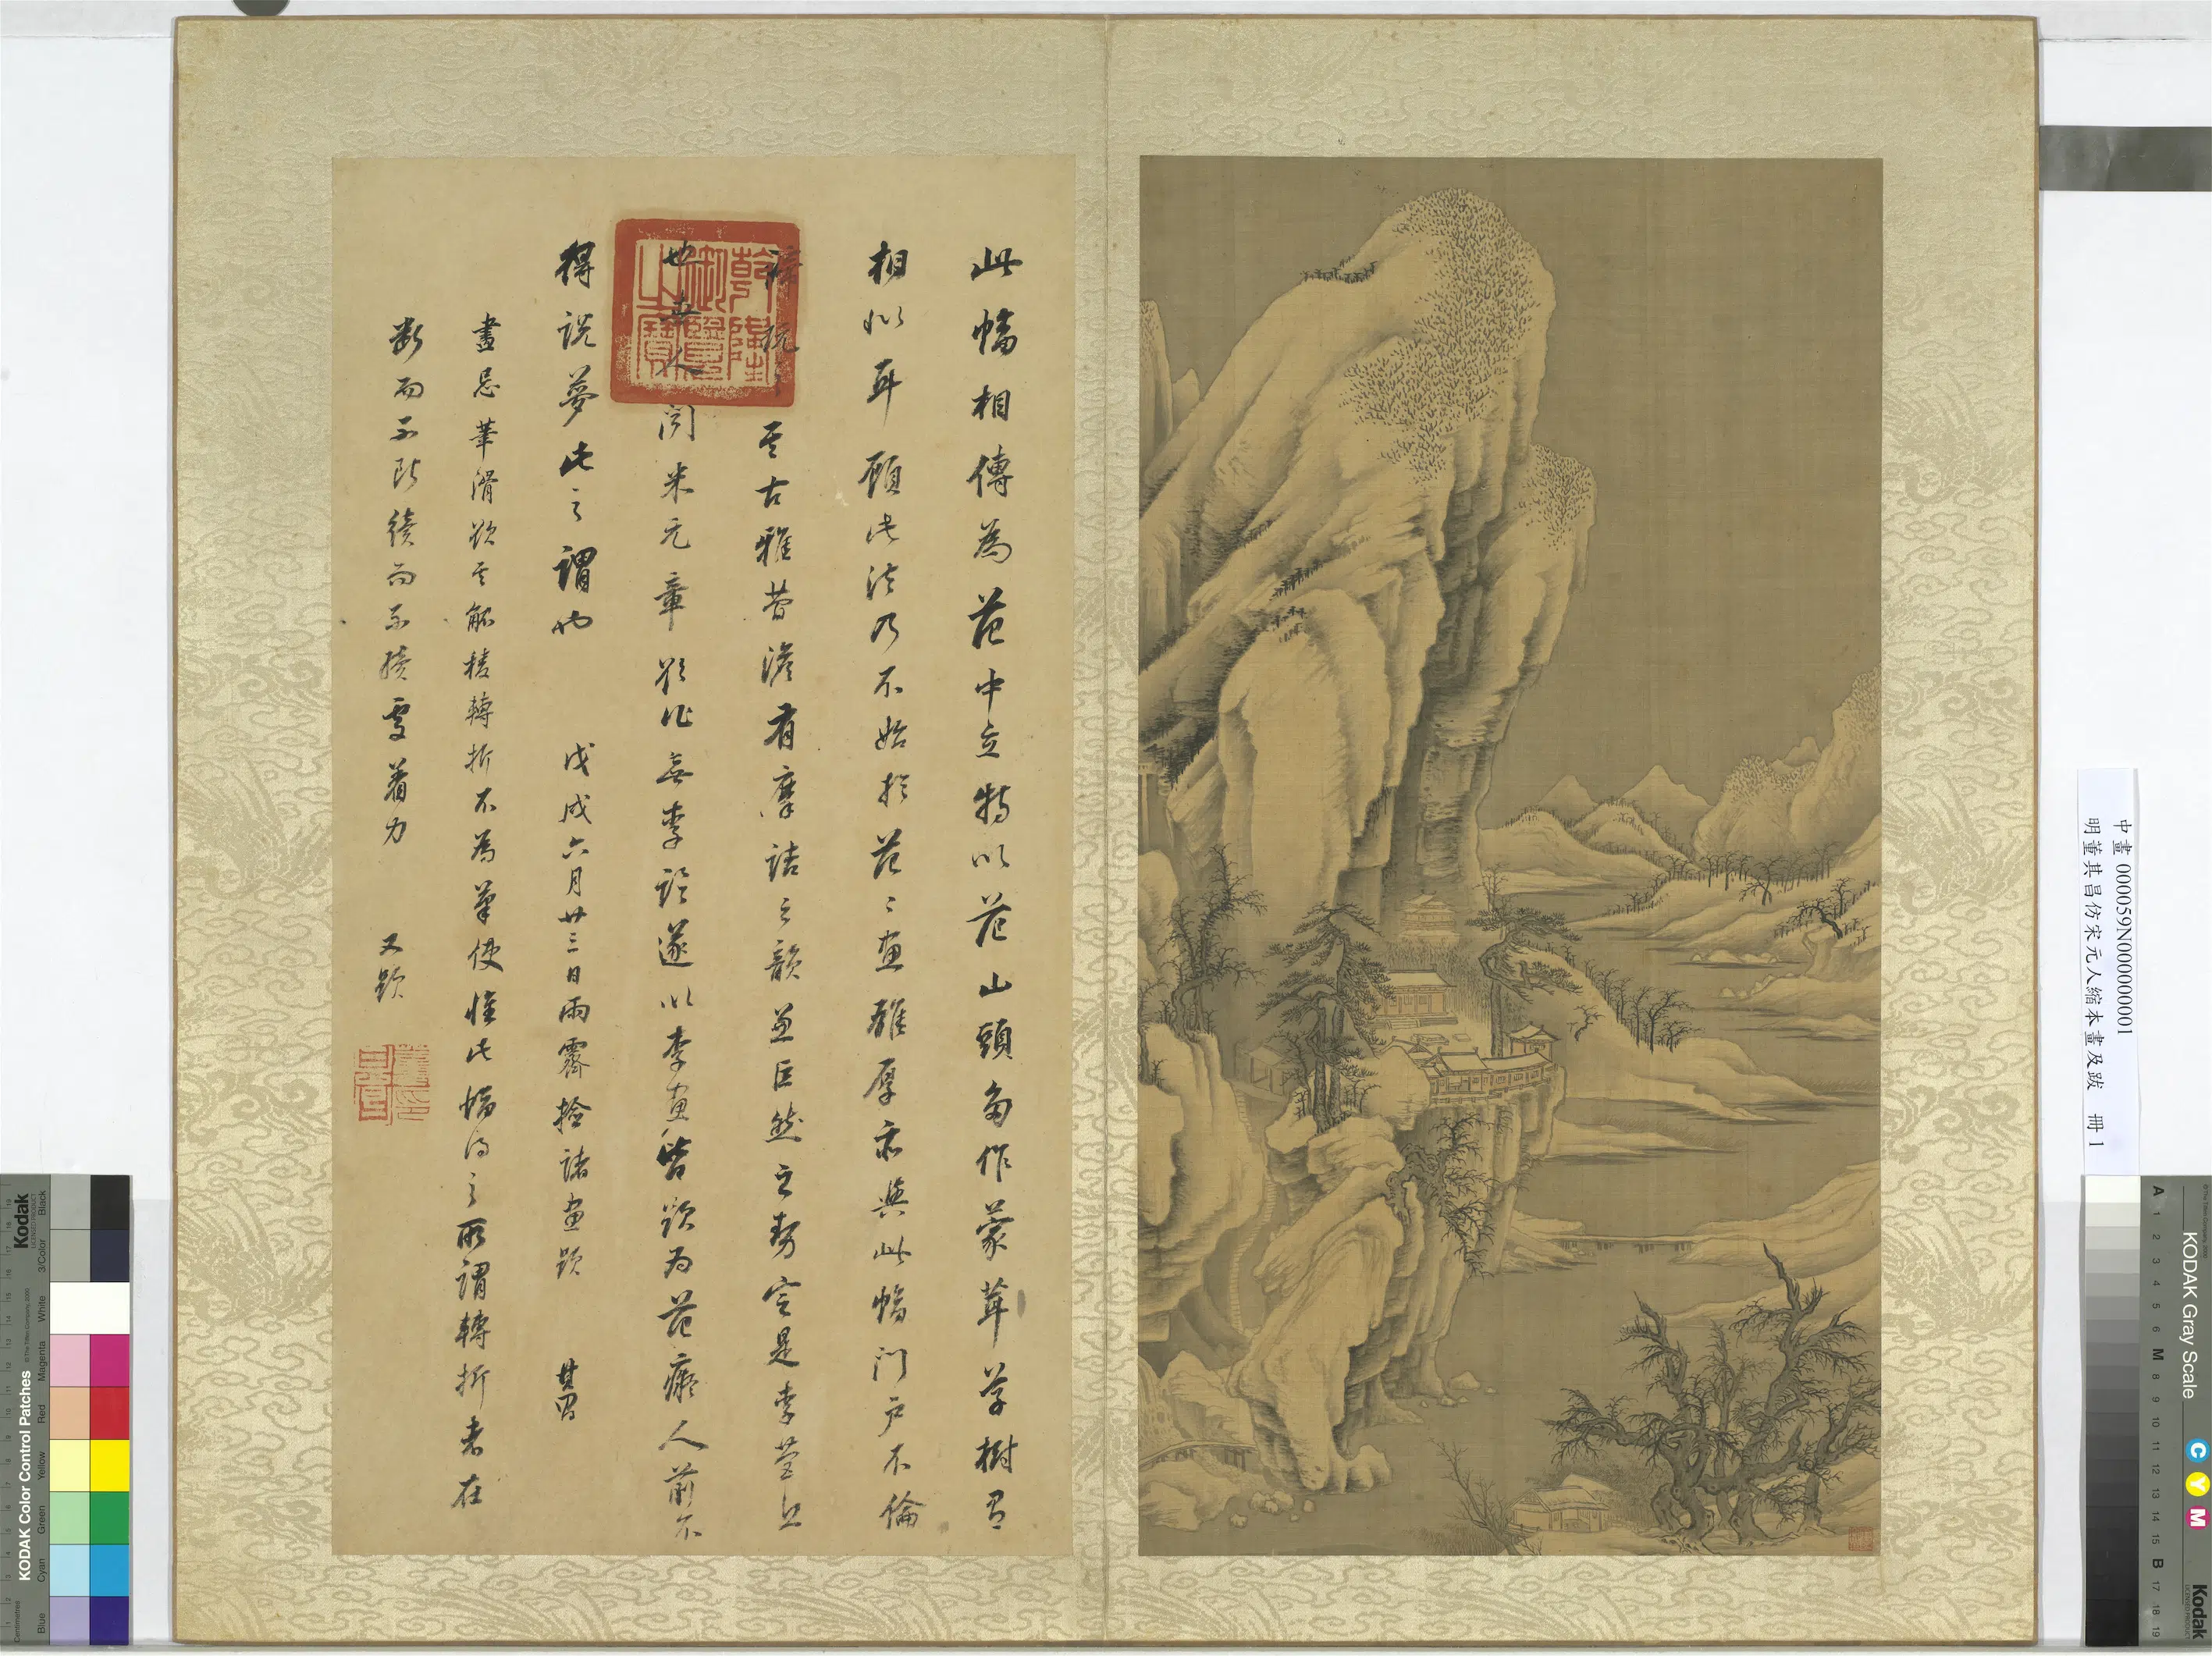 此幅相傳為范中立特以范山頭多作蒙茸草樹有
相似耳顧此法乃不始於范〻畫雖厚亦與此幅門戶不倫
諦玩之其古雅蕭澹有摩詰之韻兼巨然之勢定是李營丘
也世人聞米元章欲作無李論遂以李畫皆題为范癡人前不
得說夢此之謂也 戊戌六月廿三日雨霽撿諸畫題 其昌
畫忌筆滑欲其觚稜轉折不為筆使惟此幅得之所謂轉折者在
斷而不斷續而不續處着力 又題
乾隆御覽之寶
中畫 000059N000000001
明董其昌仿宋元人縮本畫及跋 冊 1
KODAK Color Control Patches
Kodak
Centimetres
Blue Cyan Green Yellow Red Magenta White 3/Color Black
KODAK Gray Scale
C Y M
Kodak
A 1 2 3 4 5 6 M 8 9 10 11 12 13 14 15 B 17 18 19